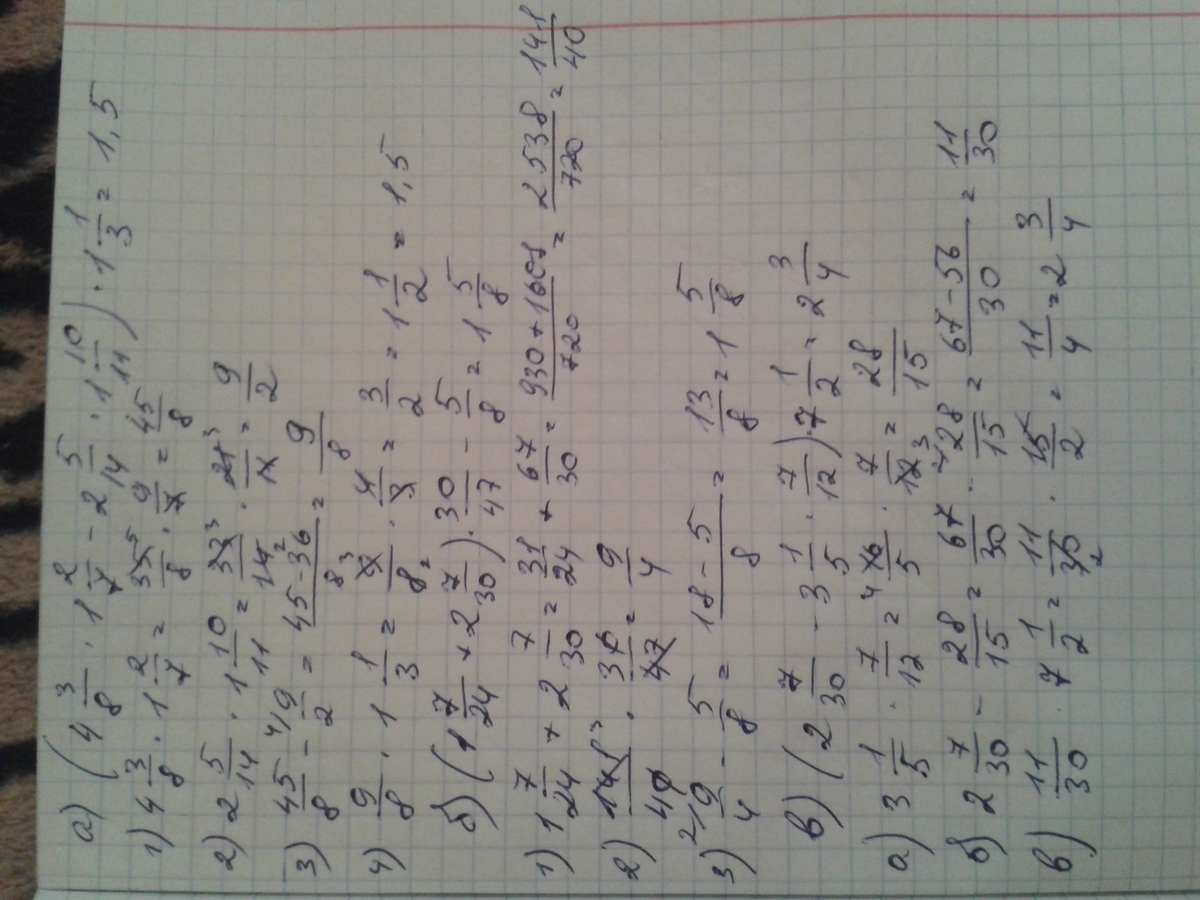 а) (4 3/8 · 1 2/7 - 2 5/14 · 1 10/11) · 1 1/3 = 1,5
1) 4 3/8 · 1 2/7 = 35⁵/8 · 9/7 = 45/8
2) 2 5/14 · 1 10/11 = 33³/14₂ · 21³/11 = 9/2
3) 45/8 - ⁴⁾9/2 = 45-36/8 = 9/8
4) 9/8 · 1 1/3 = 9³/8₂ · 4/3 = 3/2 = 1 1/2 = 1,5
б) (1 7/24 + 2 7/30) · 30/47 - 5/8 = 1 5/8
1) 1 7/24 + 2 7/30 = 31/24 + 67/30 = 930+1608/720 = 2538/720 = 141/40
2) 141³/40 · 30/47 = 9/4
3) ²⁾9/4 - 5/8 = 18-5/8 = 13/8 = 1 5/8
в) (2 7/30 - 3 1/5 · 7/12) · 7 1/2 = 2 3/4
а) 3 1/5 · 7/12 = ⁴16/5 · 7/12₃ = 28/15
б) 2 7/30 - 28/15 = 67/30 - ²⁾28/15 = 67-56/30 = 11/30
в) 11/30 · 7 1/2 = 11/30₂ · 15/2 = 11/4 = 2 3/4